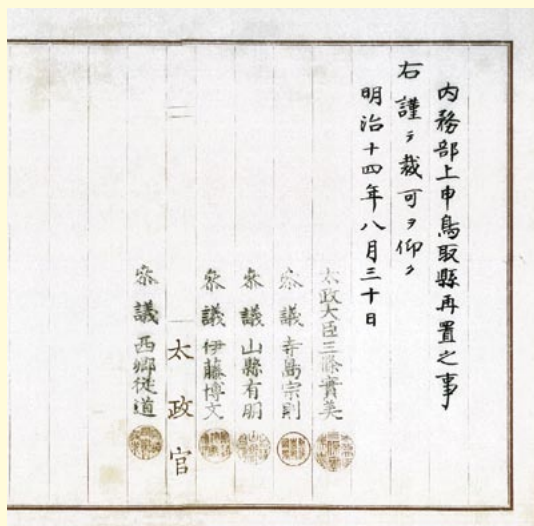 内務部上申鳥取縣再置之事
右謹テ裁可ヲ仰ク
明治十四年八月三十日
太政大臣三條實美
参議寺島宗則
参議山縣有朋
参議伊藤博文
太政官
参議西郷従道